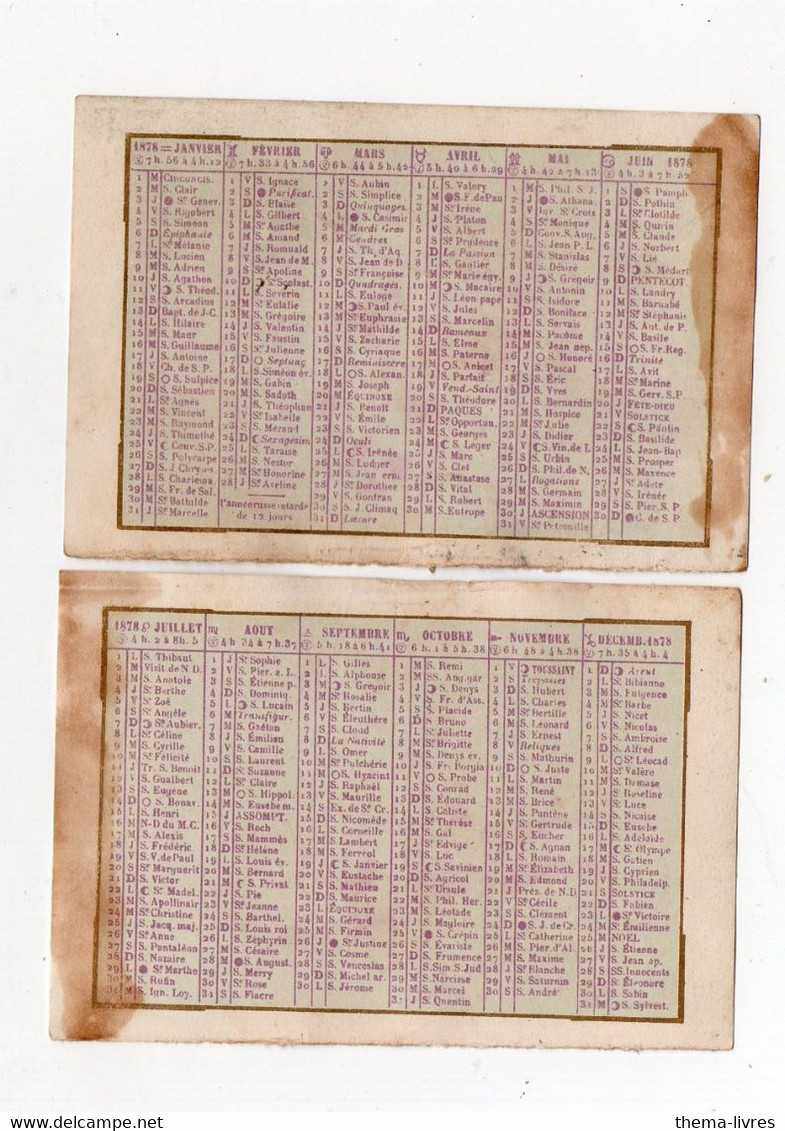 1878 = JANVIER
7 h. 56 à 4 h. 12
1 M CIRCONCIS.
2 M S. Clair
3 J S. Genev.
4 V S. Rigobert
5 S S. Siméon
6 D Épiphanie
7 L Sᵗ Mélanie
8 M S. Lucien
9 M S. Adrien
10 J S. Agathon
11 V S. Théod.
12 S S. Arcadius
13 D Bapt. de J-C.
14 L S. Hilaire
15 M S. Maur
16 M S. Guillaume
17 J S. Antoine
18 V Ch. de S. P.
19 S S. Sulpice
20 D S. Sébastien
21 L Sᵗ Agnès
22 M S. Vincent
23 M S. Raymond
24 J S. Thimothé
25 V Conv. S.P.
26 S S. Polycarpe
27 D S. J Chrys.
28 L S. Charlema.
29 M S. Fr. de Sal.
30 M Sᵗ Bathilde
31 J Sᵗ Marcelle
FÉVRIER
7 h. 33 à 4 h. 56
1 V S. Ignace
2 S Purificat.
3 D S. Blaise
4 L S. Gilbert
5 M Sᵗ Agathe
6 M S. Amand
7 J S. Romuald
8 V S. Jean de M.
9 S Sᵗ Apoline
10 D Sᵗ Scolast.
11 L S. Séverin
12 M Sᵗ Eulalie
13 M S. Grégoire
14 J S. Valentin
15 V S. Faustin
16 S Sᵗ Julienne
17 D Septuag
18 L S. Siméon év.
19 M S. Gabin
20 M S. Sadoth
21 J S. Théophile
22 V Sᵗ Isabelle
23 S S. Méraud
24 D Sexagésim
25 L S. Taraise
26 M S. Nestor
27 M Sᵗ Honorine
28 J Sᵗ Aveline
l'année russe retarde
de 12 jours
MARS
6 h. 44 à 5 h. 42
1 V S. Aubin
2 S S. Simplice
3 D Quinquages.
4 L S. Casimir
5 M Mardi Gras
6 M Cendres
7 J S. Th. d'Aq.
8 V S. Jean de D
9 S Sᵗ Françoise
10 D Quadragés.
11 L S. Euloge
12 M S. Paul év.
13 M Sᵗ Euphrasie
14 J Sᵗ Mathilde
15 V S. Zacharie
16 S S. Cyriaque
17 D Reminiscere
18 L S. Alexan.
19 M S. Joseph
20 M ÉQUINOXE
21 J S. Benoit
22 V S. Émile
23 S S. Victorien
24 D Oculi
25 L S. Irénée
26 M S. Ludger
27 M S. Jean erm.
28 J Sᵗ Dorothée
29 V S. Gontran
30 S S. J. Climaq
31 D Lætare
AVRIL
5 h. 40 à 6 h. 29
1 L S. Valery
2 M S. F. de Pau
3 M Sᵗ Irène
4 J S. Platon
5 V S. Albert
6 S Sᵗ Prudence
7 D La Passion
8 L S. Gautier
9 M Sᵗ Marie égy.
10 M S. Macaire
11 J S. Léon pape
12 V S. Jules
13 S S. Marcelin
14 D Rameaux
15 L S. Elme
16 M S. Paterne
17 M S. Anicet
18 J S. Parfait
19 V Vend.-Saint
20 S S. Théodore
21 D PAQUES
22 L Sᵗ Opportun.
23 M S. Georges
24 M S. Léger
25 J S. Marc
26 V S. Clet
27 S S. Anastase
28 D S. Vital
29 L S. Robert
30 M S. Eutrope
MAI
4 h. 42 à 7 h. 13
1 M S. Phil. S. J.
2 J S. Athana.
3 V Inv Sᵗ Croix
4 S Sᵗ Monique
5 D Conv. S. Aug.
6 L S. Jean P. L.
7 M S. Stanislas
8 M S. Désiré
9 J S. Grégoir
10 V S. Antonin
11 S S. Isidore
12 D S. Boniface
13 L S. Servais
14 M S. Pacôme
15 M S. Jean nep.
16 J S. Honoré
17 V S. Pascal
18 S S. Éric
19 D S. Yves
20 L S. Bernardin
21 M S. Hospice
22 M Sᵗ Julie
23 J S. Didier
24 V S. Vin. de L
25 S S. Urbin
26 D S. Phil. de N.
27 L Rogations
28 M S. Germain
29 M S. Maximin
30 J ASCENSION
31 V Sᵗ Petronille
JUIN 1878
4 h. 3 à 7 h. 52
1 S S. Pamph
2 D S. Pothin
3 L Sᵗ Clotilde
4 M S. Quirin
5 M S. Claude
6 J S. Norbert
7 V S. Lié
8 S S. Médart
9 D PENTECOT.
10 L S. Landry
11 M S. Barnabé
12 M Sᵗ Stéphanie
13 J S. Ant. de P.
14 V S. Basile
15 S S. Fr. Rég.
16 D Trinité
17 L S. Avit
18 M Sᵗ Marine
19 M S. Gerv. S.P.
20 J FÊTE-DIEU
21 V SOLSTICE
22 S S. Paulin
23 D S. Basilide
24 L S. Jean-Bap
25 M S. Prosper
26 M S. Maxence
27 J Sᵗ Adète
28 V S. Irénée
29 S S. Pier. S. P.
30 D C. de S. P.
1878 JUILLET
4 h. 2 à 8 h. 5
1 L S. Thibaut
2 M Visit. de N. D.
3 M S. Anatole
4 J Sᵗ Berthe
5 V Sᵗ Zoé
6 S Sᵗ Angèle
7 D Sᵗ Aubier.
8 L Sᵗ Céline
9 M S. Cyrille
10 M Sᵗ Félicité
11 J Tr. S. Benoit
12 V S. Gualbert
13 S S. Eugène
14 D S. Bonav.
15 L S. Henri
16 M N-D du M.C.
17 M S. Alexis
18 J S. Frédéric
19 V S. V. de Paul
20 S Sᵗ Marguerit
21 D S. Victor
22 L Sᵗ Madel.
23 M S. Apollinair
24 M Sᵗ Christine
25 J S. Jacq. maj.
26 V Sᵗ Anne
27 S S. Pantaléon
28 D S. Nazaire
29 L Sᵗ Marthe
30 M S. Rufin
31 M S. Ign. Loy.
AOUT
4 h 34 à 7 h. 37
1 J Sᵗ Sophie
2 V S. Pier. ès L.
3 S S. Étienne p.
4 D S. Dominiq.
5 L S. Lucain
6 M Transfigur.
7 M S. Gaëtan
8 J S. Émilien
9 V S. Camille
10 S S. Laurent
11 D S. Suzanne
12 L Sᵗ Claire
13 M S. Hippol.
14 M S. Eusebe m.
15 J ASSOMPT.
16 V S. Roch
17 S S. Mammès
18 D Sᵗ Hélène
19 L S. Louis év.
20 M S. Bernard
21 M S. Privat
22 J S. Pie
23 V Sᵗ Jeanne
24 S S. Barthel.
25 D S. Louis roi
26 L S. Zéphyrin
27 M S. Césaire
28 M S. August.
29 J S. Merry
30 V Sᵗ Rose
31 S S. Fiacre
SEPTEMBRE
5 h. 18 à 6 h. 41
1 D S. Gilles
2 L S. Alphonse
3 M S. Gregoir
4 M Sᵗ Rosalie
5 J S. Bertin
6 V S. Éleuthère
7 S S. Cloud
8 D La Nativité
9 L S. Omer
10 M Sᵗ Pulchérie
11 M S. Hyacint
12 J S. Raphaël
13 V S. Maurille
14 S Ex. de Sᵗ Cr.
15 D S. Nicomède
16 L S. Corneille
17 M S. Lambert
18 M S. Ferreol
19 J S. Janvier
20 V S. Eustache
21 S S. Mathieu
22 D S. Maurice
23 L ÉQUINOXE
24 M S. Gérard
25 M S. Firmin
26 J Sᵗ Justine
27 V S. Cosme
28 S S. Venceslas
29 D S. Michel ar.
30 L S. Jérôme
OCTOBRE
6 h. 1 à 5 h. 38
1 M S. Remi
2 M SS. Ang. gar
3 J S. Denys
4 V S. Fr. d'Ass.
5 S S. Placide
6 D S. Bruno
7 L Sᵗ Juliette
8 M Sᵗ Brigitte
9 M S. Denys év.
10 J S. Fr. Borgia
11 V S. Probe
12 S S. Conrad
13 D S. Edouard
14 L S. Caliste
15 M Sᵗ Thérèse
16 M S. Gal
17 J Sᵗ Edvige
18 V S. Luc
19 S S. Savinien
20 D S. Agricol
21 L Sᵗ Ursule
22 M S. Phil. Her.
23 M S. Léotade
24 J S. Magloire
25 V S. Crépin
26 S S. Évariste
27 D S. Frumence
28 L S. Sim. S. Jud
29 M S. Narcisse
30 M S. Marcel
31 J S. Quentin
NOVEMBRE
6 h 48 à 4 h. 38
1 V TOUSSAINT
2 S Trépassés
3 D S. Hubert
4 L S. Charles
5 M Sᵗ Bertille
6 M S. Léonard
7 J S. Ernest
8 V Reliques
9 S S. Mathurin
10 D S. Juste
11 L S. Martin
12 M S. René
13 M S. Brice
14 J S. Pantène
15 V Sᵗ Gertrude
16 S S. Eucher
17 D S. Agnan
18 L S. Romain
19 M Sᵗ Élizabeth
20 M S. Edmond
21 J Prés. de N.D
22 V Sᵗ Cécile
23 S S. Clément
24 D S. J. de Cr.
25 L Sᵗ Catherine
26 M S. Pier. d'Al.
27 M S. Maxime
28 J Sᵗ Blanche
29 V S. Saturnin
30 S S. André
DÉCEMB. 1878
7 h. 35 à 4 h. 4
1 D Avent
2 L Sᵗ Bibianne
3 M S. Fulgence
4 M Sᵗ Barbe
5 J S. Nicet
6 V S. Nicolas
7 S S. Ambroise
8 D S. Alfred
9 L Sᵗ Léocad
10 M Sᵗ Valère
11 M S. Damase
12 J Sᵗ Roseline
13 V Sᵗ Luce
14 S S. Nicaise
15 D S. Eusebe
16 L Sᵗ Adelaïde
17 M Sᵗ Olympe
18 M S. Gatien
19 J S. Cyprien
20 V S. Philadelp.
21 S SOLSTICE
22 D S. Fabien
23 L Sᵗ Victoire
24 M Sᵗ Émilienne
25 M NOEL
26 J S. Étienne
27 V S. Jean ap.
28 S SS. Innocents
29 D Sᵗ Éléonore
30 L S. Sabin
31 M S. Sylvest.
thema-livres